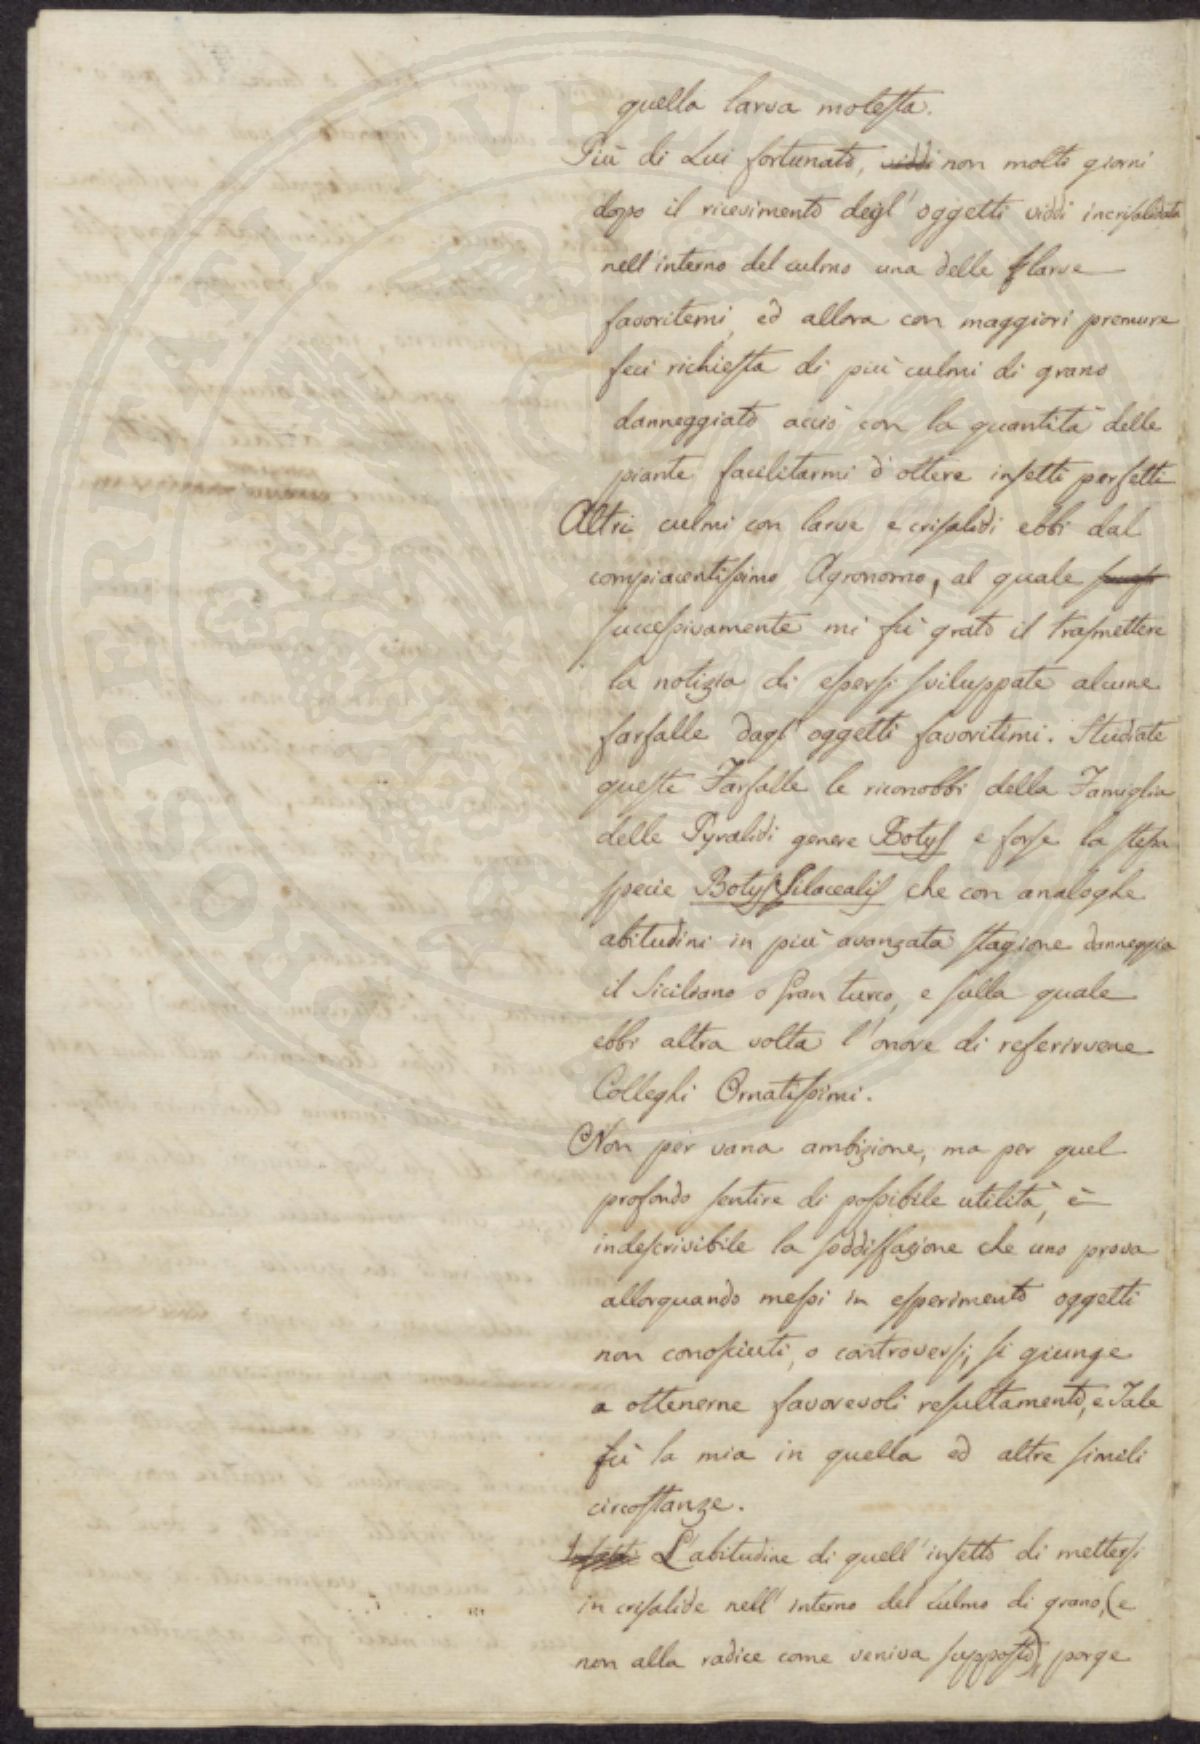 quella larva molesta.
Più di Lui fortunato, viddi non molti giorni
dopo il ricevimento degl' oggetti viddi incrisalidata
nell'interno del culmo una delle larve
favoritemi, ed allora con maggiori premure
feci richiesta di più culmi di grano
danneggiato acciò con la quantità delle
piante facilitarmi d'ottere insetti perfetti
Altri culmi con larve e crisalidi ebbi dal
compiacentissimo Agronomo, al quale
successivamente mi fù grato il trasmettere
la notizia di essersi sviluppate alcune
farfalle dagl' oggetti favoritimi. Studiate
queste Farfalle le riconobbi della Famiglia
delle Pyralidi genere Botys e forse la stessa
specie Botys Silacealis che con analoghe
abitudini in più avanzata stagione danneggia
il Siciliano o Gran turco, e sulla quale
ebbi altra volta l'onore di referirvene
Colleghi Ornatissimi.
Non per vana ambizione, ma per quel
profondo sentire di possibile utilità, è
indescrivibile la soddisfazione che uno prova
allorquando messi in esperimento oggetti
non conosciuti, o controversi, si giunge
a ottenerne favorevoli resultamento, e Tale
fù la mia in quella ed altre simili
circostanze.
Infatti L'abitudine di quell'insetto di mettersi
in crisalide nell'interno del culmo di grano, (e
non alla radice come veniva supposto), porge
PROSPERITATI PVBLICAE